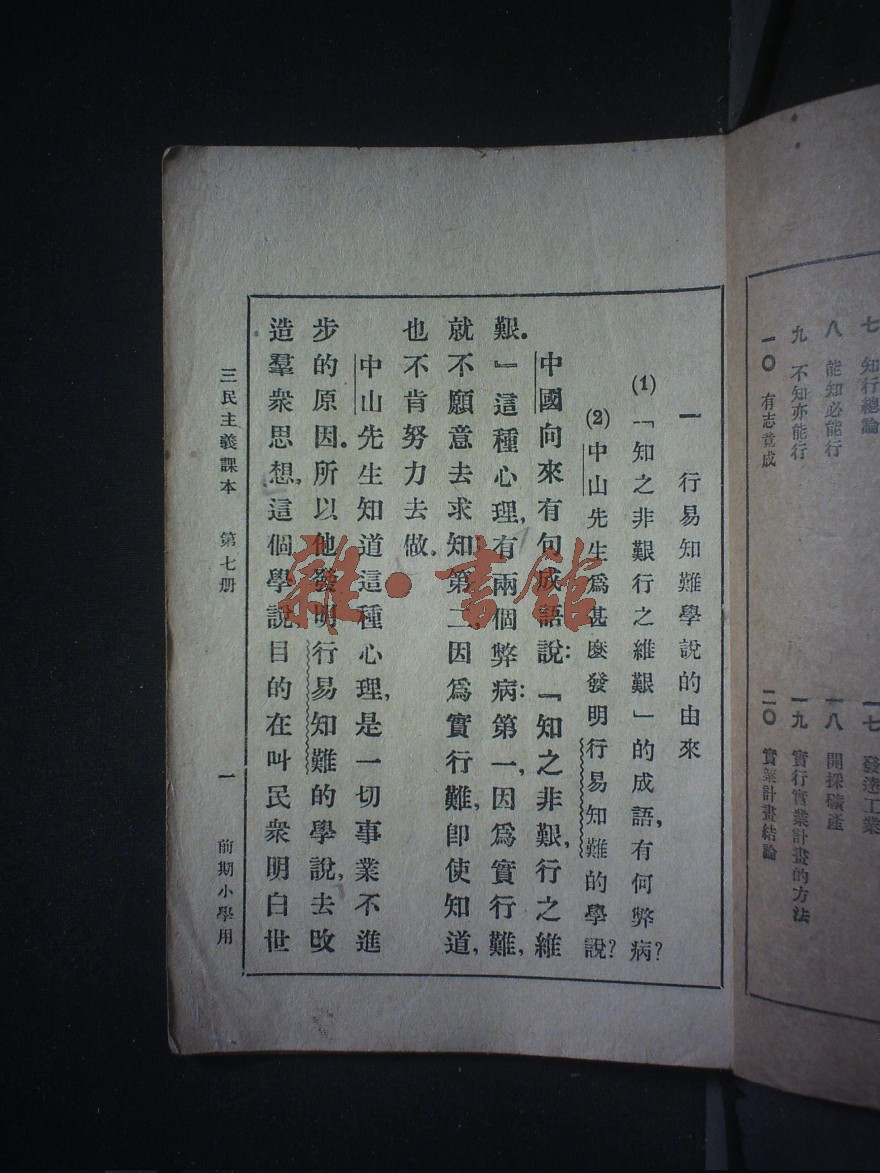 七 知行總論
八 能知必能行
九 不知亦能行
一〇 有志竟成
一七 發達工業
一八 開採礦產
一九 實行實業計畫的方法
二〇 實業計畫結論
一 行易知難學說的由來
(1)「知之非艱行之維艱」的成語,有何弊病?
(2)中山先生爲甚麼發明行易知難的學說?
中國向來有句成語說:「知之非艱,行之維
艱.」這種心理,有兩個弊病:第一,因爲實行難,
就不願意去求知.第二,因爲實行難,卽使知道,
也不肯努力去做.
中山先生知道這種心理,是一切事業不進
步的原因.所以他發明行易知難的學說,去改
造羣衆思想,這個學說,目的在叫民衆明白世
三民主義課本 第七册 一 前期小學用
雜·書館